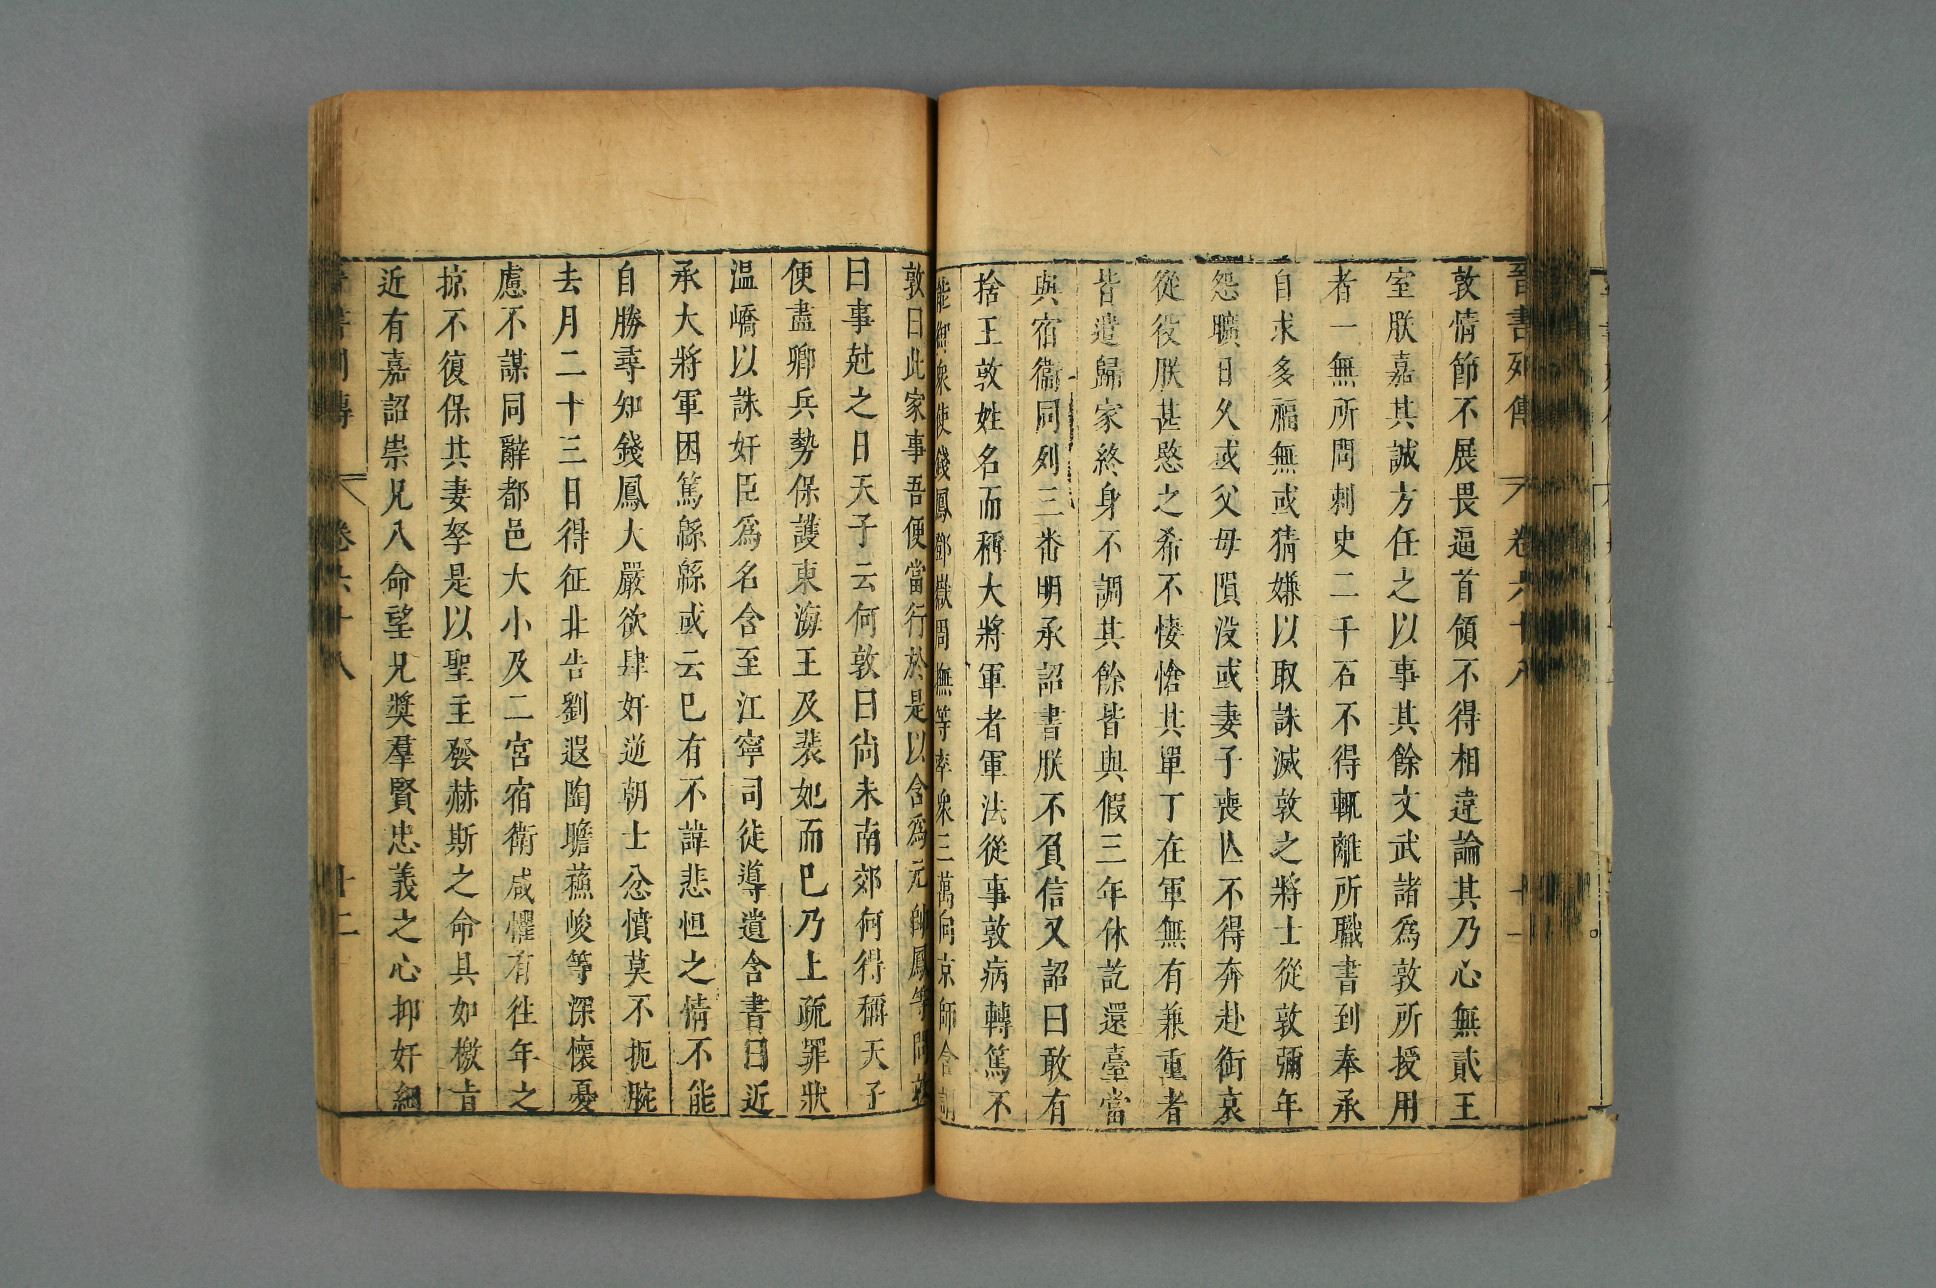 晉書列傳 卷六十八 十一
敦情節不展畏逼首領不得相違論其乃心無貳王
室朕嘉其誠方任之以事其餘文武諸爲敦所授用
者一無所問刺史二千石不得輒離所職書到奉承
自求多福無或猜嫌以取誅滅敦之將士從敦彌年
怨曠日久或父母隕没或妻子喪亾不得奔赴銜哀
從役朕甚愍之希不悽愴其單丁在軍無有兼重者
皆遣歸家終身不調其餘皆與假三年休訖還臺當
與宿衞同列三番明承詔書朕不負信又詔曰敢有
捨王敦姓名而稱大將軍者軍法從事敦病轉篤不
能御衆使錢鳳鄧嶽周撫等率衆三萬向京師含謂
敦曰此家事吾便當行於是以含爲元帥鳳等問敦
曰事尅之日天子云何敦曰尚未南郊何得稱天子
便盡卿兵勢保護東海王及裴妃而已乃上疏罪狀
温嶠以誅奸臣爲名含至江寧司徒導遺含書曰近
承大將軍困篤緜緜或云已有不諱悲怛之情不能
自勝尋知錢鳳大嚴欲肆奸逆朝士忿憤莫不扼腕
去月二十三日得征北告劉遐陶瞻蘇峻等深懷憂
慮不謀同辭都邑大小及二宮宿衛咸懼有往年之
掠不復保其妻孥是以聖主發赫斯之命具如檄旨
近有嘉詔崇兄八命望兄奬羣賢忠義之心抑奸細
晉書列傳 卷六十八 十二